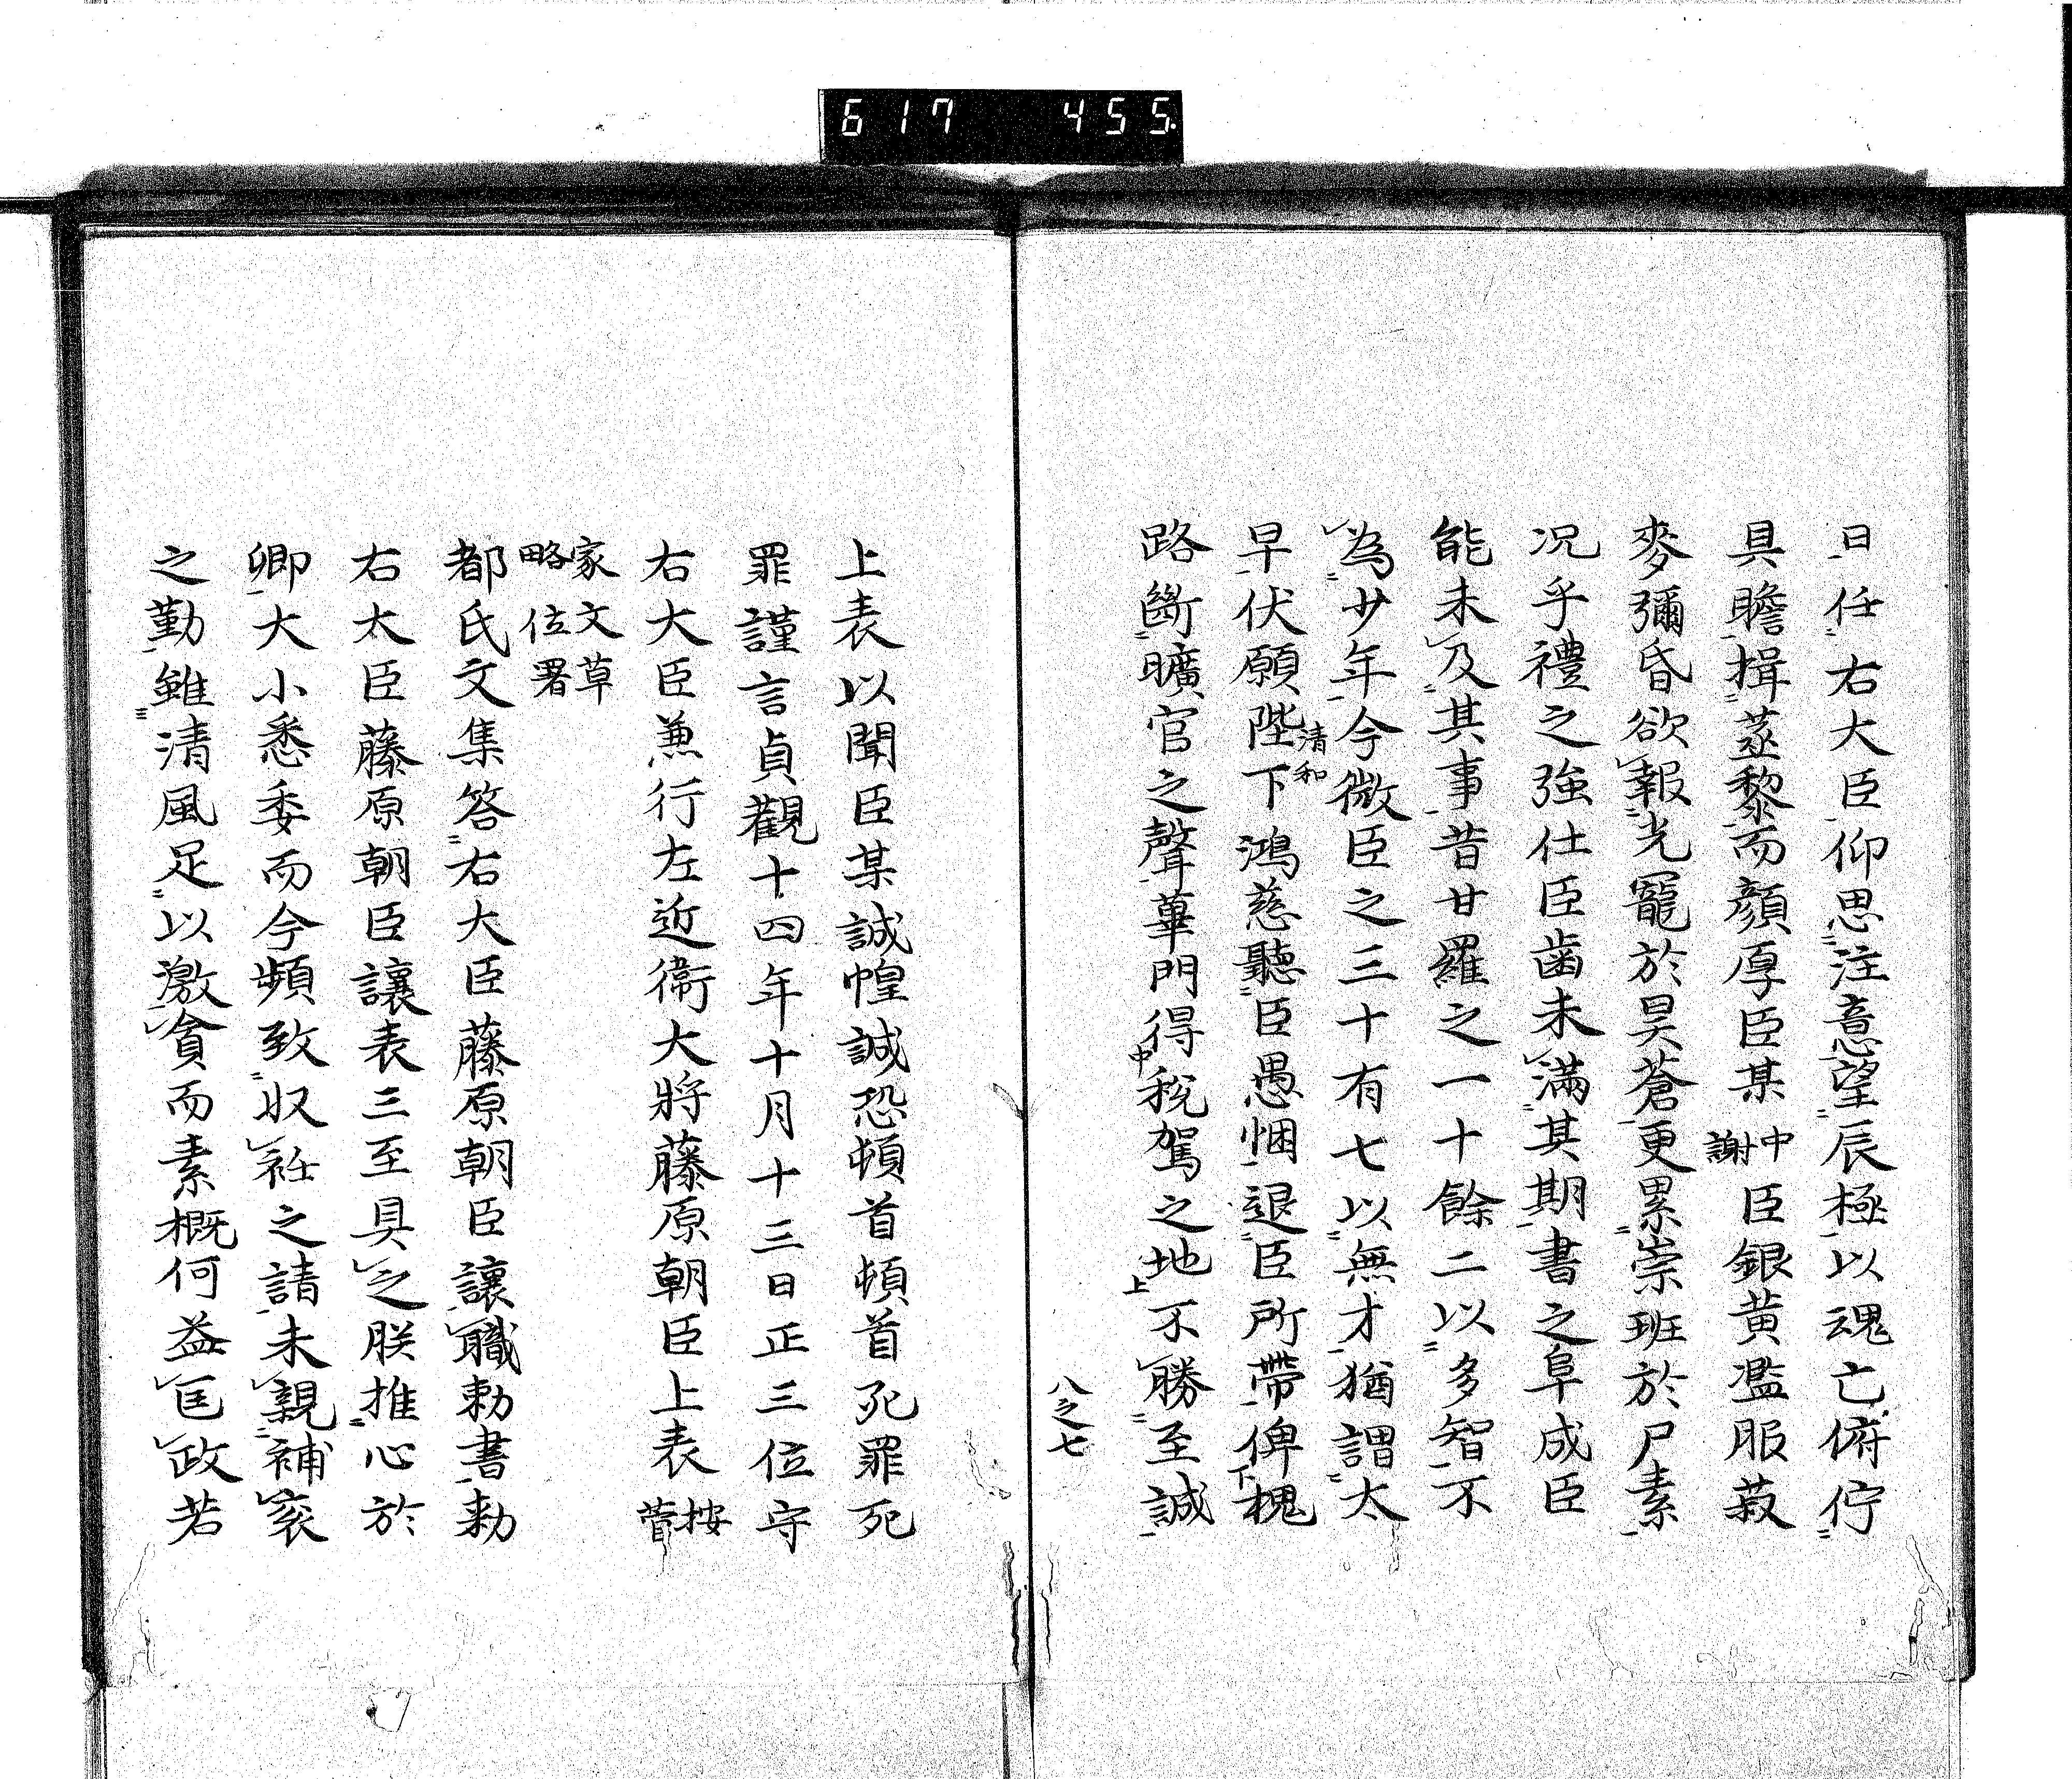 617 455
日任右大臣仰思注意望辰極以魂亡俯佇
具瞻揖蒸黎而顔厚臣某中謝臣銀黄濫服菽
麥彌昏欲報光寵於昊蒼更累崇班於尸素
況乎禮之強仕臣歯未滿其期書之阜成臣
能未及其事昔甘羅之一十餘二以多智不
為少年今微臣之三十有七以無才猶謂太
早伏願陛下清和鴻慈聽臣愚悃退臣所帶俾槐下
路斷曠官之聲蓽門得中稅駕之地上不勝至誠
八之七
上表以聞臣某誠惶誠恐頓首頓首死罪死
罪謹言貞觀十四年十月十三日正三位守
右大臣兼行左近衞大將藤原朝臣上表按菅
家文草略位署
都氏文集答右大臣藤原朝臣讓職勅書勅
右大臣藤原朝臣讓表三至具之朕推心於
卿大小悉委而今頻致収衽之請未親補衮
之勤雖清風足以激貪而素概何益匡政若